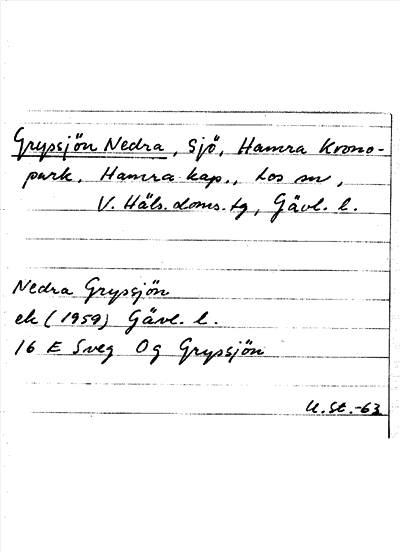 Grypsjön Nedra, sjö, Hamra Krono-
park, Hamra kap., Los sn,
V. Häls. doms. tg, Gävl. l.
Nedra Grypsjön
ek (1959) Gävl. l.
16 E Sveg 0g Grypsjön
U. St. -63